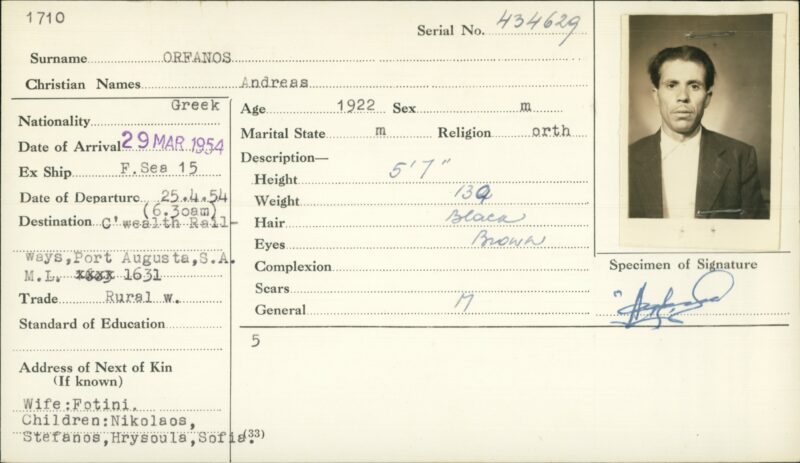 1710
Serial No. 434629
Surname ORFANOS
Christian Names Andreas
Nationality Greek
Date of Arrival 29 MAR 1954
Ex Ship F.Sea 15
Date of Departure 25.4.54
(6.30am)
Destination C'wealth Rail-
ways, Port Augusta, S.A.
M.L. 1631
Trade Rural w.
Standard of Education
Address of Next of Kin
(If known)
Wife:Fotini.
Children:Nikolaos,
Stefanos,Hrysoula,Sofia.(33)
Age 1922 Sex m
Marital State m Religion orth
Description—
Height 5'7"
Weight 139
Hair Black
Eyes Brown
Complexion
Scars
General M
5
Specimen of Signature